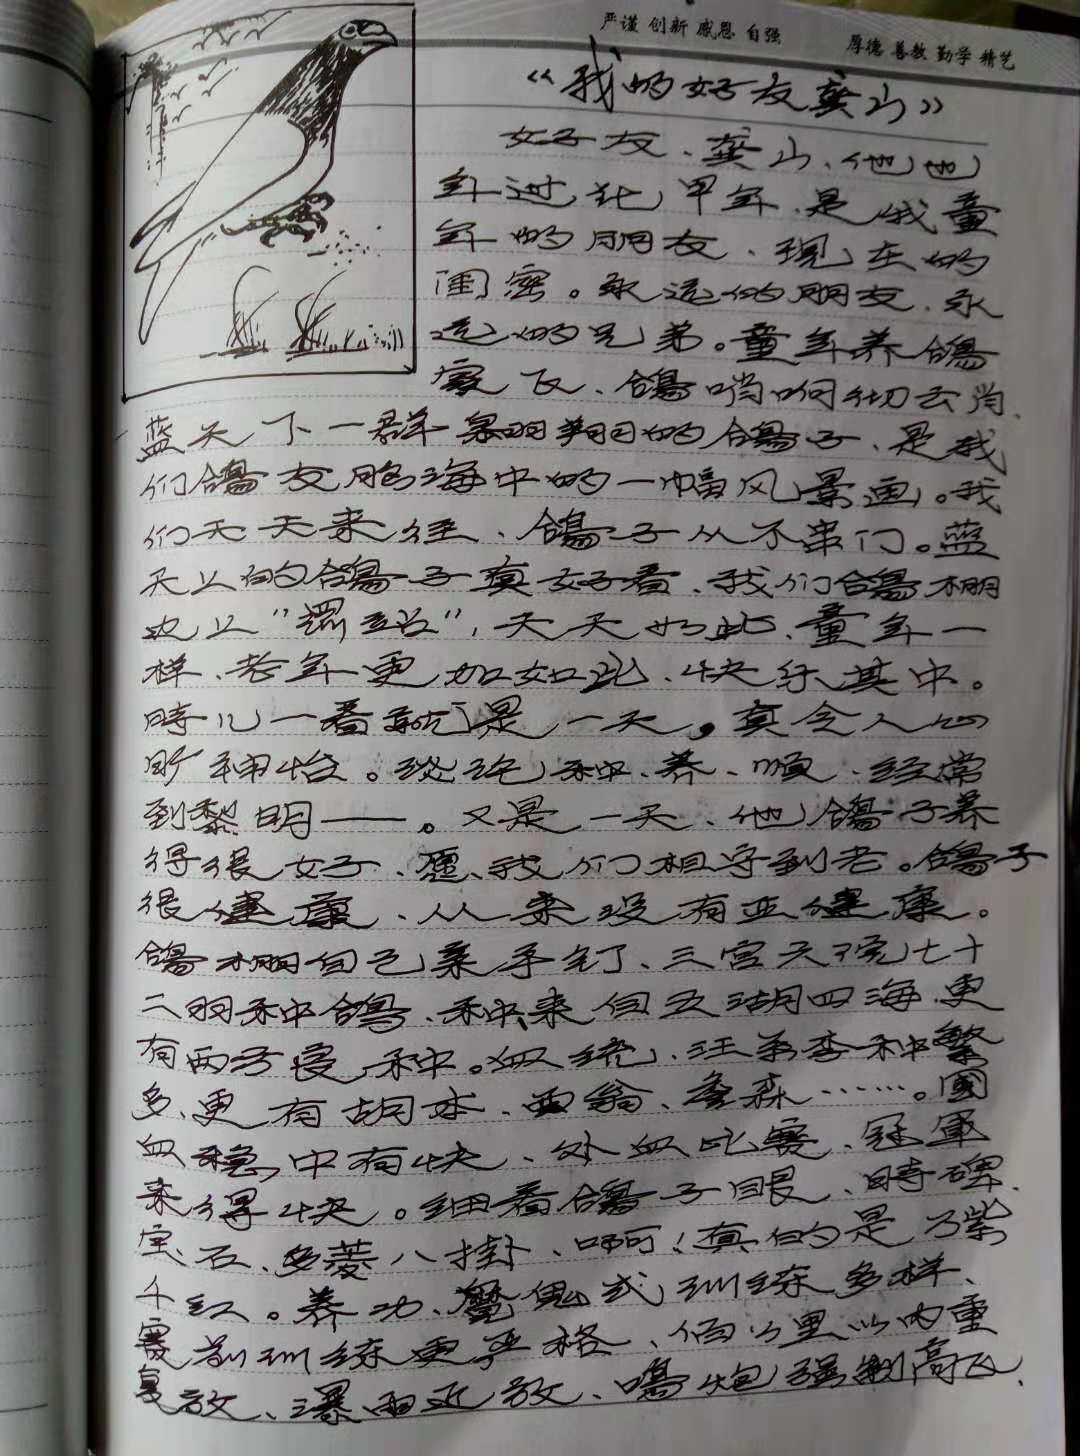 严谨 创新 感恩 自强
厚德 善教 勤学 精艺
《我的好友龚山》
好友、龚山、他也
年过花甲年、是我童
年的朋友、现在的
闺密。永远的朋友、永
远的兄弟。童年养鸽
赛飞、鸽哨响彻云宵、
蓝天下一群翱翔的鸽子、是我
们鸽友脑海中的一幅风景画。我
们天天来往、鸽子从不串门。蓝
天上的鸽子真好看、我们鸽棚
边上"逻辑"，天天如此、童年一
样、老年更加如此、快乐其中。
時儿一看就是一天。真令人心
旷神怡。谈论种、养、顺、经常
到黎明——。又是一天、他鸽子养
得很好、愿我们相守到老。鸽子
很健康、从来没有亚健康。
鸽棚自己亲手钉、三宫六院七十
二羽种鸽、种来自五湖四海、更
有两子良种。血统、汪、李种繁
多、更有胡本、西翁、詹森……。国
血稳中有快、外血比赛、冠军
来得快。细看鸽子眼、
宝石、多菱八卦、啊！真的是万紫
千红。养功、魔鬼式训练多样、
赛前训练更严格、佰公里以内重
复放、瀑雨近放、鸣炮强制高飞、